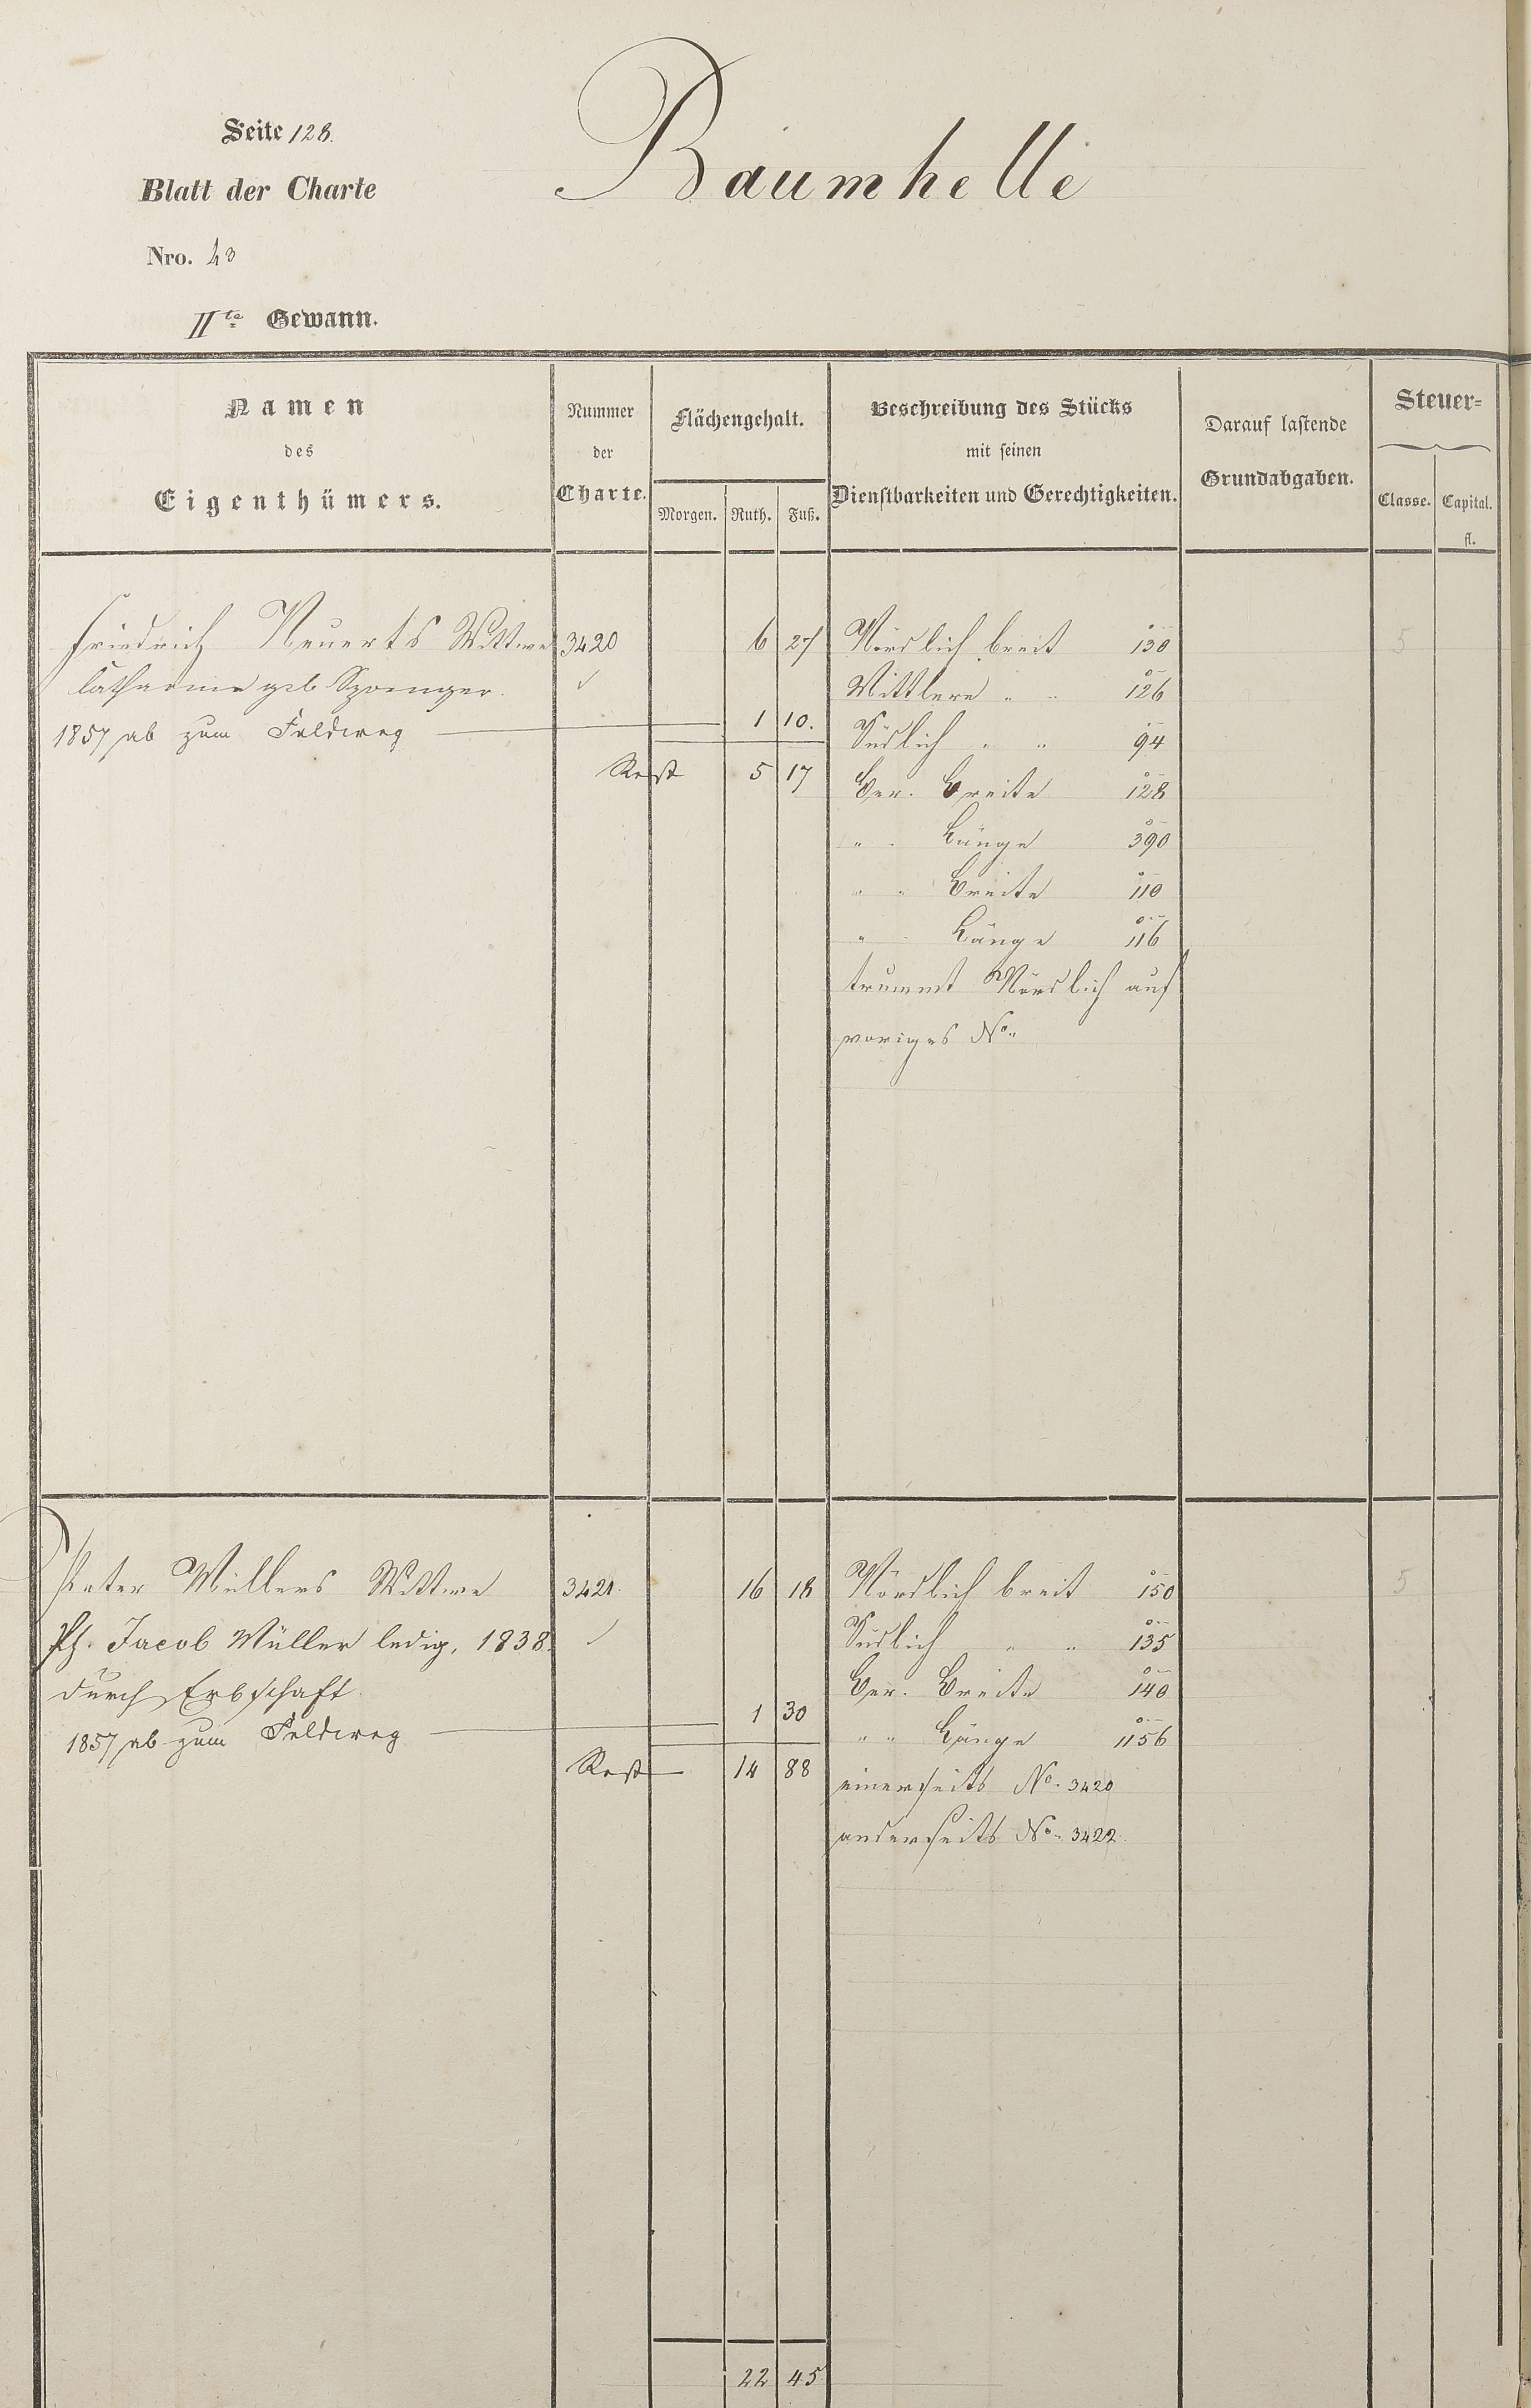 Seite 128.
Baumhelle
Blatt der Charte
Nro. 43
IIte Gewann.
Namen des Eigenthümers.
Nummer der Charte.
Flächengehalt.
Morgen. Ruth. Fuß.
Beschreibung des Stücks mit seinen Dienstbarkeiten und Gerechtigkeiten.
Darauf lastende Grundabgaben.
Steuer-
Classe. Capital. fl.
Friedrich Neuerts Wittwe 3420 6 27 Nördlich breit 130 5
Catharine geb Sprenger. ✓ Mittlere " " 126
1857 ab zum Feldweg 1 10. Südlich " " 94
Rest 5 17 Ber. Breite 128
" " Länge 390
" " Breite 110
" " Länge 116
trummt Nördlich auf
voriges No.
Peter Müllers Wittwe 3421. 16 18 Nördlich breit 150 5
Ph. Jacob Müller ledig, 1838. ✓ Südlich " " 135
durch Erbschaft. Ber. Breite 140
1857 ab zum Feldweg 1 30 " " Länge 1156
Rest 14 88 einerseits No. 3420
anderseits No. 3422.
22 45